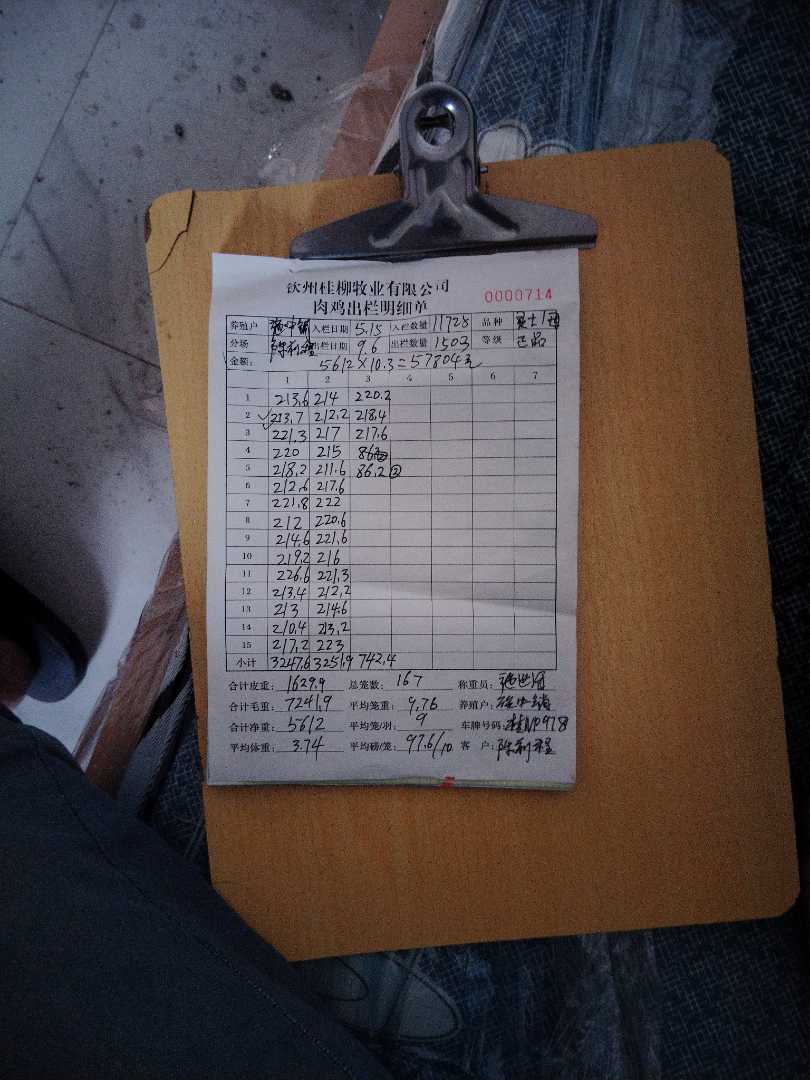 钦州桂柳牧业有限公司
肉鸡出栏明细单 0000714
养殖户 入栏日期 5.15 入栏数量 11728 品种
分场 陈利程 出栏日期 9.6 出栏数量 1503 等级 正品
金额: 5612×10.3=57804元
1 2 3 4 5 6 7
1 213.6 214 220.2
2 213.7 212.2 218.4
3 221.3 217 217.6
4 220 215
5 218.2 211.6 86.2②
6 212.6 217.6
7 221.8 222
8 212 220.6
9 214.6 221.6
10 219.2 216
11 226.6 221.3
12 213.4 212.2
13 213 214.6
14 210.4 213.2
15 217.2 223
小计 3247.6 3251.9 742.4
合计皮重: 1629.9 总笼数: 167 称重员:
合计毛重: 7241.9 平均笼重: 9.76 养殖户:
合计净重: 5612 平均笼/羽: 9 车牌号码:
平均体重: 3.74 平均磅/笼: 97.6/10 客户: 陈利程